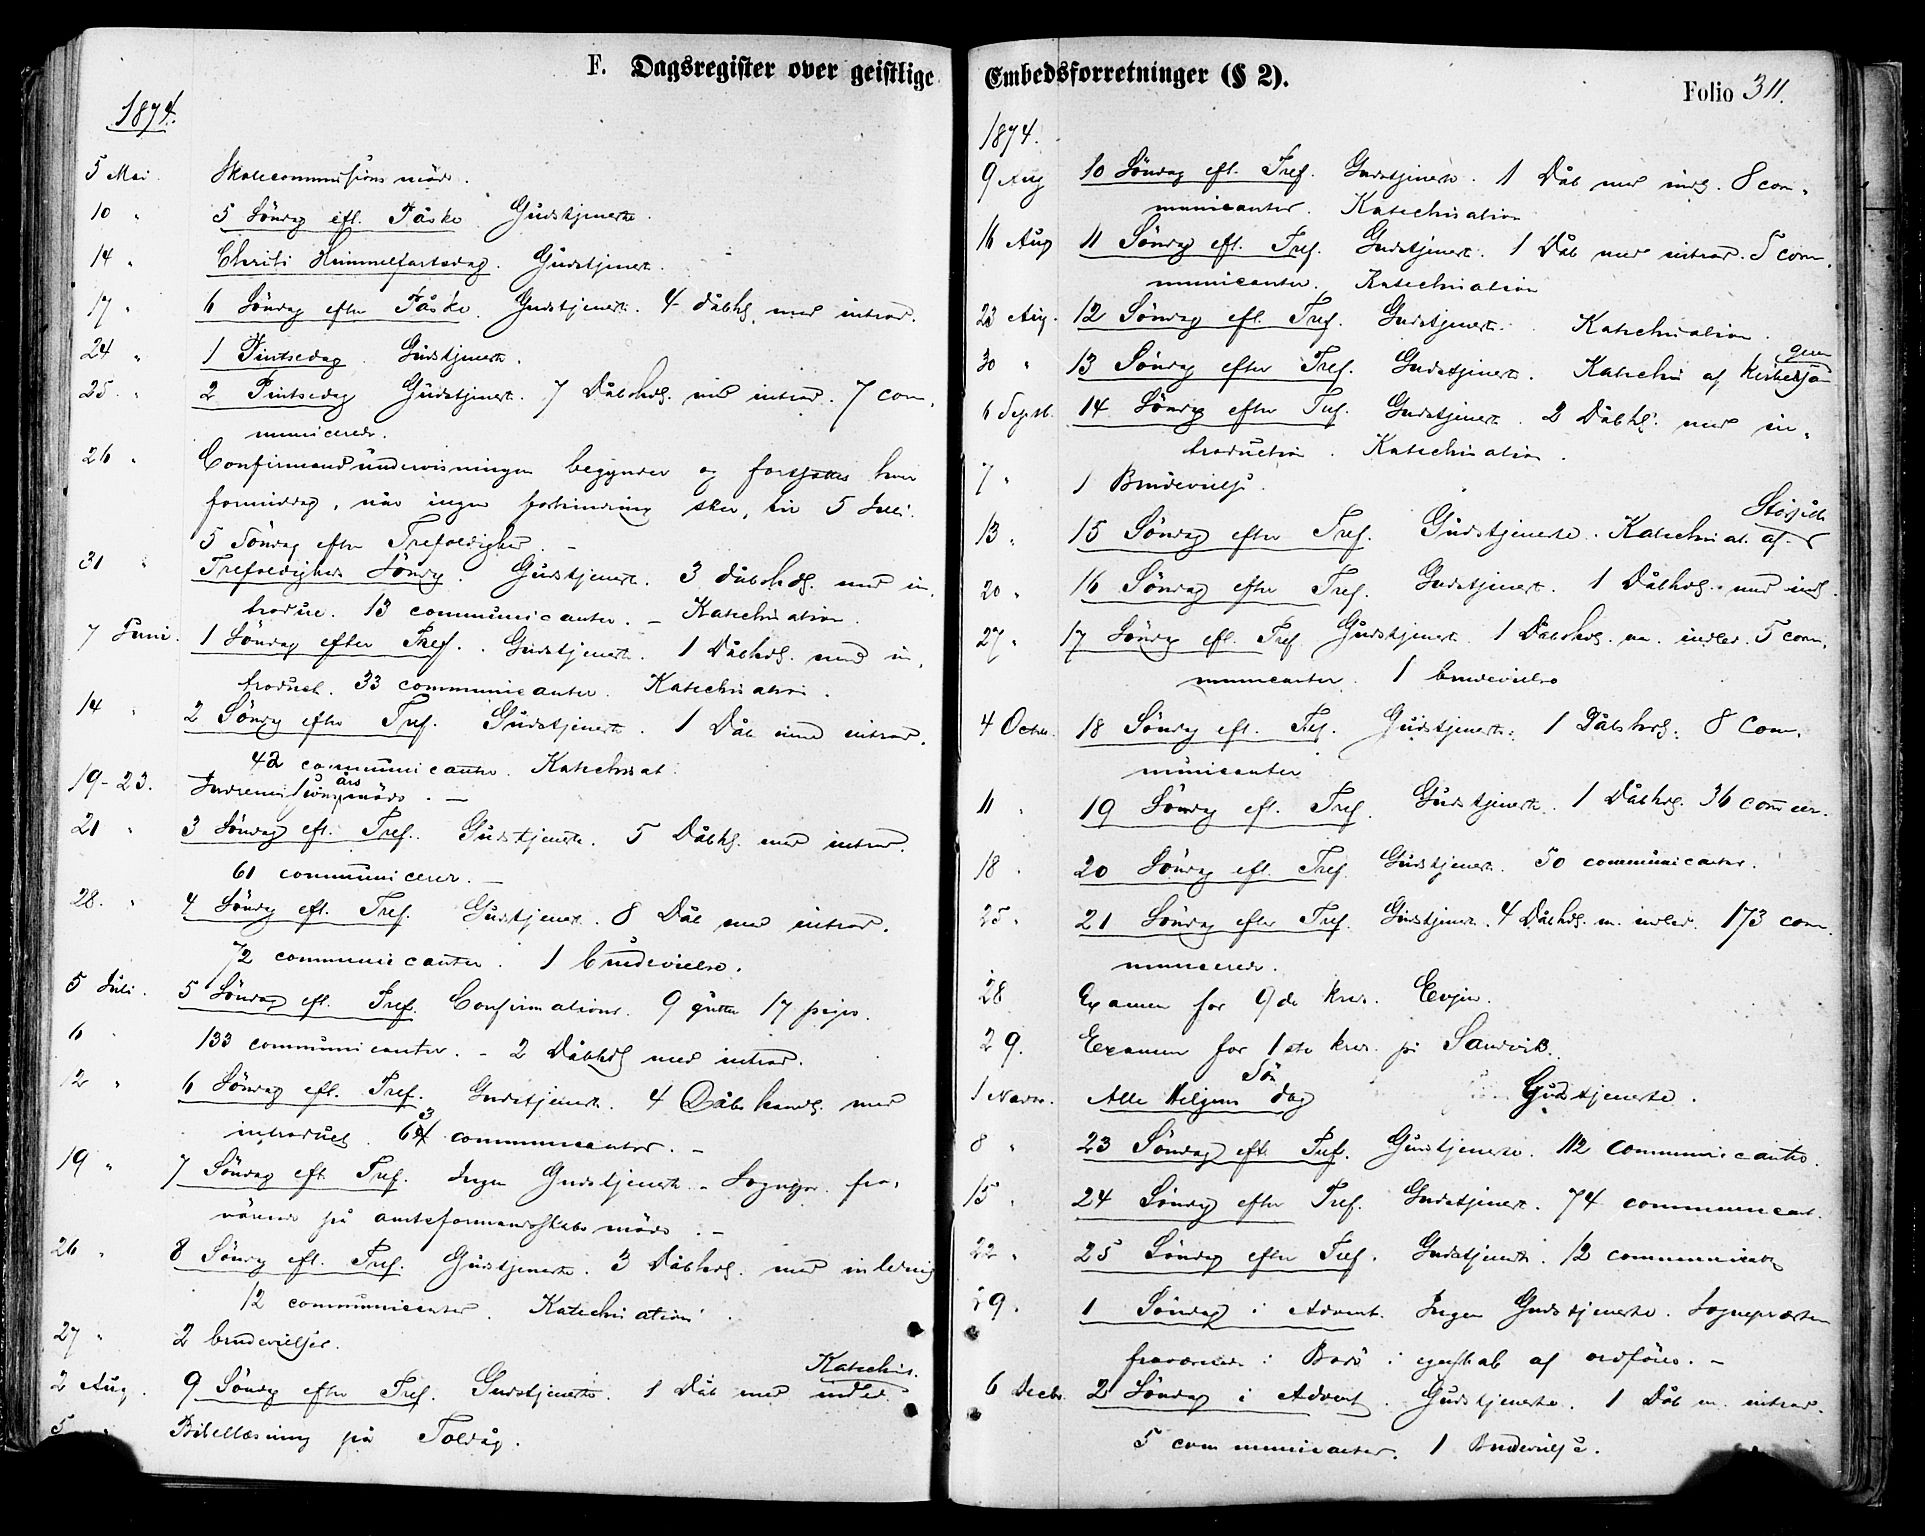 F. Dagsregister over geistlige
1874.
5 Mai. Skolecommissions møde.
10 " 5 Söndag eft. Påske Gudstjeneste.
14 " Christi Himmelfartsdag. Gudstjenest.
17 " 6 Söndag efter Påske. Gudstjenest. 4 dåbhdl. med introd.
24 " 1 Pintsedag. Gudstjeneste.
25 " 2 Pintsedag Gudstjenest. 7 Dåbshdl. med introd. 7 com-
municerede.
26 " Confirmandundervisningen begynder og fortsættes hver
formiddag, når ingen forhindring sker, til 5 Juli.
5 Söndag efter Trefoldighed. –
31 " Trefoldigheds Söndag. Gudstjenest. 3 dåbshdl. med in-
troduc. 13 communicanter. – Katechisation.
7 Juni. 1 Söndag efter Tref. Gudstjenest. 1 Dåbhdl. med in-
troduct. 33 communicanter. Katechisation.
14 " 2 Söndag efter Tref. Gudstjenest. 1 Dåb med introd.
42 communicanter. Katechisat.
19-23. Indremissions års møde. –
21 " 3 Söndag eft. Tref. Gudstjeneste. 5 Dåbhdl. med introd.
61 communicerer. –
28. " 4 Söndag eft. Tref. Gudstjenest. 8 Dåb med introd.
72 communicanter. 1 brudevielse.
5 Juli. 5 Söndag eft. Tref. Confirmations. 9 gutter 17 piger.
6 133 communicanter. - 2 Dåbhdl med introd.
12 " 6 Söndag eft. Tref. Gudstjenest. 4 Dåbs handl. med
introduct. 63 communicanter. –
19 " 7 Söndag eft Tref. Ingen Gudstjenest. Sognepr. fra-
værende på amtsformandskabs møde. –
26 " 8 Söndag eft. Tref. Gudstjeneste. 3 Dåbhdl. med inledning
12 communicanter. Katechisation.
27 " 2 brudevielser.
Katechis.
2 Aug. 9 Söndag efter Tref. Gudstjeneste. 1 Dåb med indled.
5 " Bibellæsning på Toldåg.
Embedsforretninger (§ 2).
Folio 311.
1874.
9 Aug 10 Söndag eft. Tref. Gudstjeneste. 1 Dåb med indl. 8 com-
municanter. Katechisation
16 Aug 11 Söndag eft. Tref. Gudstjenest. 1 Dåb med introd. 5 com-
municanter. Katechisation
23 Aug. 12 Söndag eft. Tref. Gudstjenest. Katechisation.
30 " 13 Söndag efter Tref. Gudstjenest. Katechis af
6 Septb. 14 Söndag efter Tref. Gudstjenest. 2 Dåbhdl. med in-
troduction. Katechisation.
7 " 1 Brudevielse.
13 " 15 Söndag efter Tref. Gudstjeneste. Katechisat. af
20 " 16 Söndag efter Tref. Gudstjenest. 1 Dåbhdl. med indl.
27 " 17 Söndag eft. Tref. Gudstjenest. 1 Dåbshdl. m. indled. 5 com-
municanter. 1 brudevielse
4 Octbr. 18 Söndag eft. Tref. Gudstjenest. 1 Dåbshdl. 8 Com-
municanter
11 " 19 Söndag eft. Tref. Gudstjenest. 1 Dåbhdl. 36 commun.
18 . 20 Söndag eft. Tref. Gudstjenest. 50 communicanter.
25 " 21 Söndag efter Tref. Gudstjenest. 4 Dåbhdl. m. indled. 173 com-
municerede.
28 Examen for 9de kreds. Evjen.
29. Examen for 1ste kreds. på Sandvik.
1 Novbr. Alle Helgens Søn dag Gudstjeneste.
8 " 23 Söndag eft Tref. Gudstjeneste. 112 communicanter.
15 " 24 Söndag efter Tref. Gudstjenest. 74 communicant.
22 " 25 Söndag efter Tref. Gudstjenest. 12 communicanter
29. 1 Söndag i Advent. Ingen Gudstjeneste. Sognepræsten
fraværende i Bodö i egenskab af ordförer. –
6 Decbr. 2 Söndag i Advent. Gudstjeneste. 1 Dåb m. introd.
5 communicanter. 1 Brudevielse.